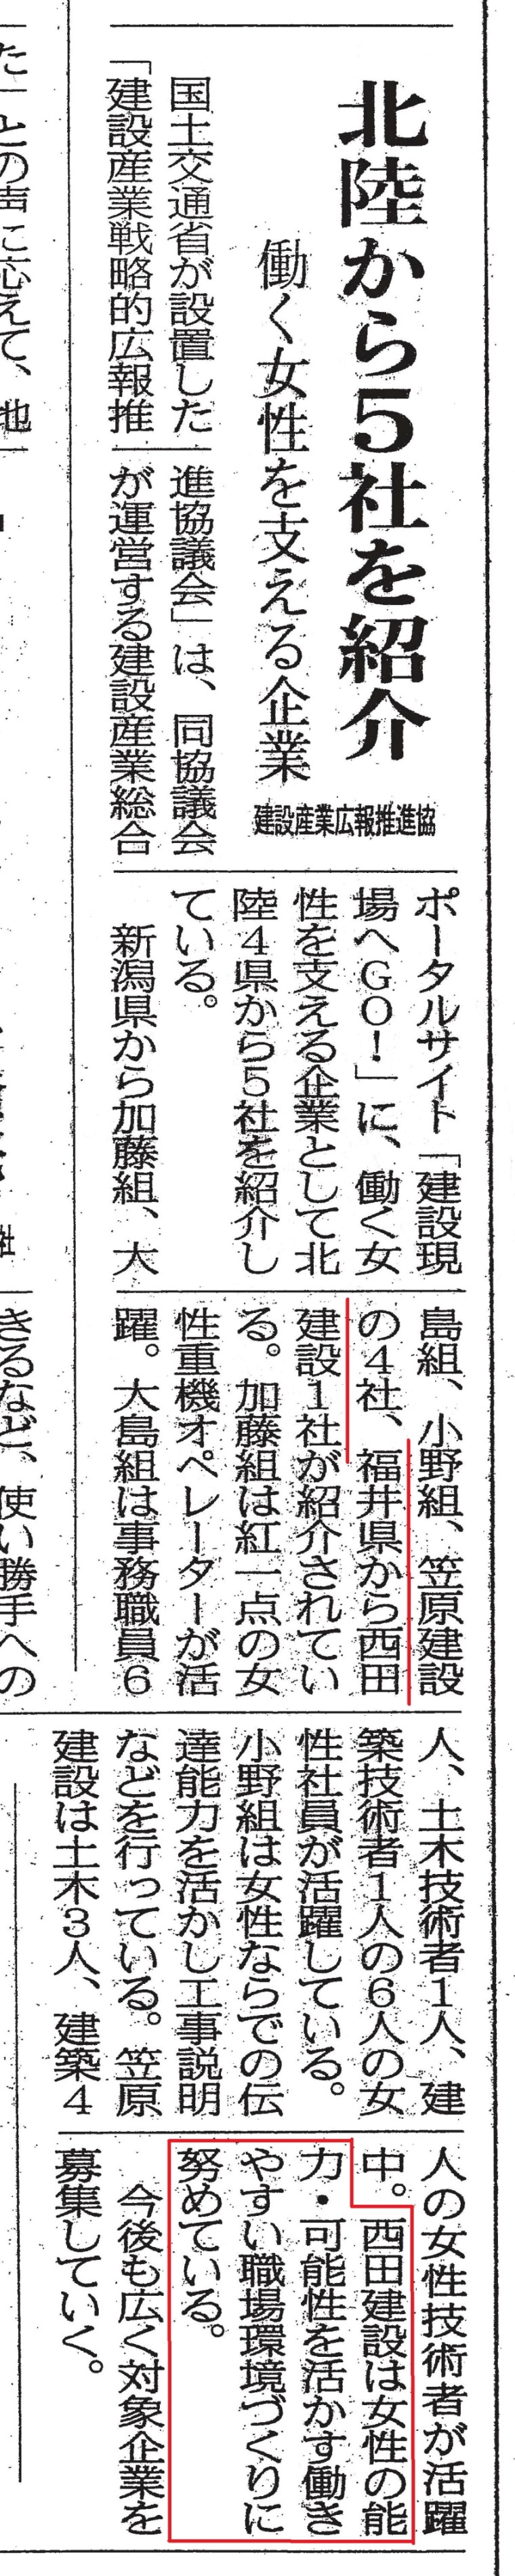 北陸から５社を紹介
働く女性を支える企業
建設産業広報推進協
国土交通省が設置した
「建設産業戦略的広報推
進協議会」は、同協議会
が運営する建設産業総合
ポータルサイト「建設現
場へＧＯ！」に、働く女
性を支える企業として北
陸４県から５社を紹介し
ている。
新潟県から加藤組、大
島組、小野組、笠原建設
の４社、福井県から西田
建設１社が紹介されてい
る。加藤組は紅一点の女
性重機オペレーターが活
躍。大島組は事務職員６
人、土木技術者１人、建
築技術者１人の６人の女
性社員が活躍している。
小野組は女性ならでの伝
達能力を活かし工事説明
などを行っている。笠原
建設は土木３人、建築４
人の女性技術者が活躍
中。西田建設は女性の能
力・可能性を活かす働き
やすい職場環境づくりに
努めている。
今後も広く対象企業を
募集していく。
た」との声に応えて、地
きるなど、使い勝手への